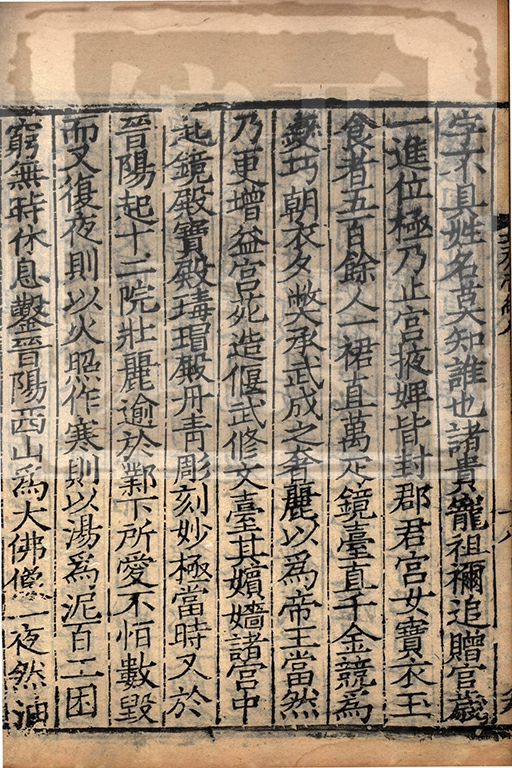 字不具姓名莫知誰也諸貴寵祖禰追贈官歲
一進位極乃止宮掖婢皆封郡君宮女寶衣玉
食者五百餘人一裙直萬疋鏡臺直千金競爲
變巧朝衣夕獘承武成之奢麗以爲帝王當然
乃更增益宮苑造偃武修文臺其嬪嬙諸宮中
起鏡殿寶殿瑇瑁殿丹青彫刻妙極當時又於
晉陽起十二院壯麗逾於鄴下所愛不恒數毀
而又復夜則以火照作寒則以湯爲泥百工困
窮無時休息鑿晉陽西山爲大佛像一夜然油